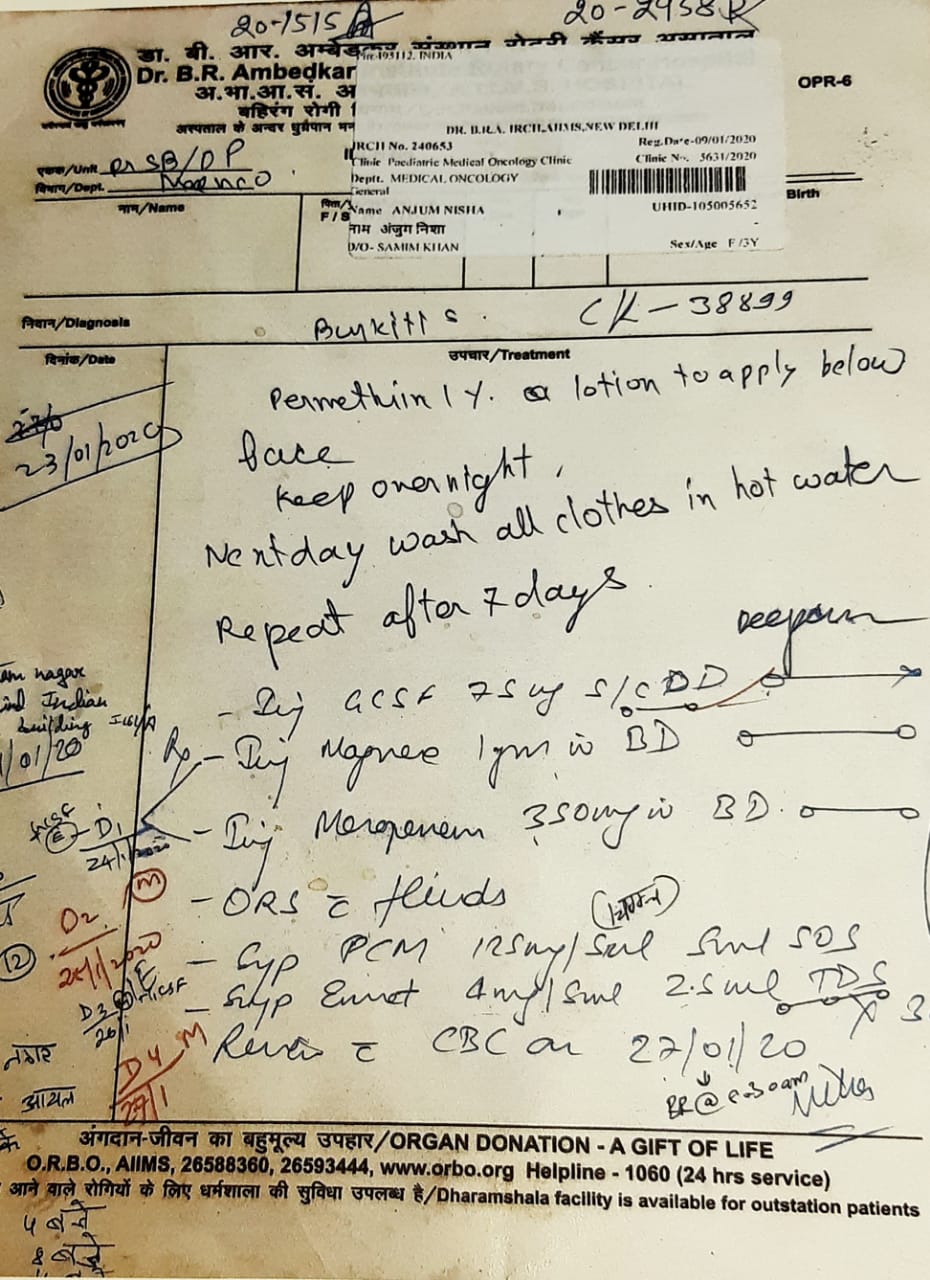 20-1515
20-2958
डा. बी. आर. अम्बेडकर संस्थान रोटरी कैंसर अस्पताल
Dr. B.R. Ambedkar
अ.भा.आ.सं. अ
बहिरंग रोगी
अस्पताल के अन्दर धुम्रपान मन
OPR-6
Pin:493112, INDIA
DR. B.R.A. IRCH,AIIMS,NEW DELHI
IRCH No. 240653
Reg.Date-09/01/2020
Clinic Paediatric Medical Oncology Clinic
Clinic No. 5631/2020
Deptt. MEDICAL ONCOLOGY
General
Name ANJUM NISHA
UHID-105005652
नाम अंजुम निशा
D/O- SAMIM KHAN
Sex/Age F /3Y
एकक/Unit Dr SB/DP
विभाग/Dept.
Birth
नाम/Name
पिता/
F / S
निदान/Diagnosis Burkitt s. CK-38899
दिनांक/Date
उपचार/Treatment
23/01/2020
Permethin 1 %. lotion to apply below
face
Keep overnight,
Next day wash all clothes in hot water
Repeat after 7 days
- Inj GCSF 75 mg S/C OD
Rx - Inj Magnex 1 gm iv BD
- Inj Meropenem 350 mg iv BD.
- ORS c fluids
- Syp PCM 125mg/5ml 5ml SOS
- Syp Emet 4mg/5ml 2.5ml TDS X 3
Review c CBC on 27/01/20
BR @ 8:30am
nagar
Indian
building
/01/20
GCSF
D1
24/1/2020
M
D2
25/1/2020
12
D3
26/1
GCSF
D4 M
27/1
नगर
आयल
अंगदान-जीवन का बहुमूल्य उपहार/ORGAN DONATION - A GIFT OF LIFE
O.R.B.O., AIIMS, 26588360, 26593444, www.orbo.org Helpline - 1060 (24 hrs service)
आने वाले रोगियों के लिए धर्मशाला की सुविधा उपलब्ध है/Dharamshala facility is available for outstation patients
4 बजे
8 बजे